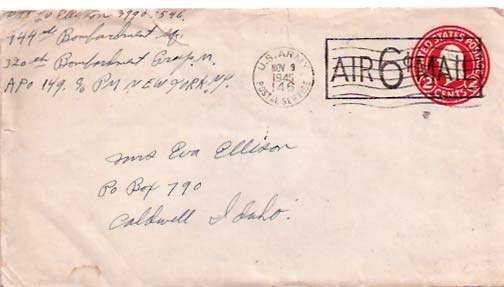 Ellison 3990.546.
744th Bombardment Sq.
320th Bombardment Group M.
APO 149. % PM NEW YORK, N.Y.
U.S. ARMY
NOV 9
1945
146
POSTAL SERVICE
AIR 6¢ MAIL
UNITED STATES POSTAGE
2 CENTS 2
Mrs Eva Ellison
Po Box 790
Caldwell Idaho.